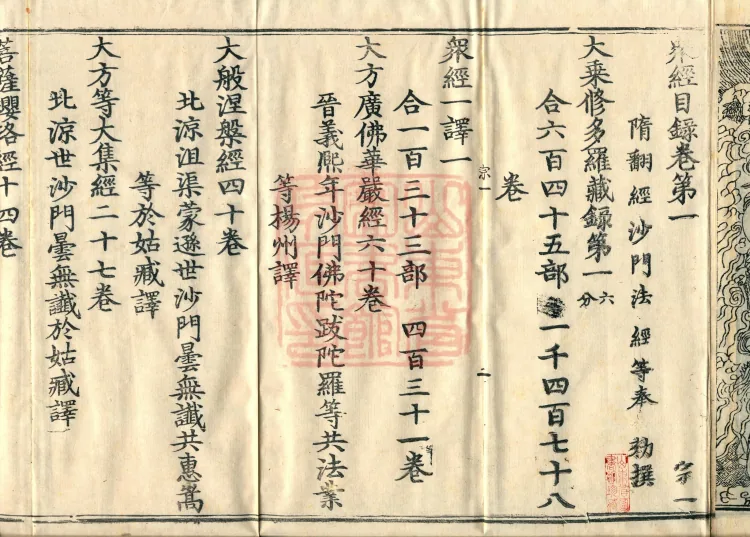 衆經目錄卷第一 宗一
隋翻經沙門法經等奉 勑撰
大乗修多羅藏録第一六分
合六百四十五部 一千四百七十八
卷
宗一 二
衆經一譯一
合一百三十三部 四百三十一卷
大方廣佛華嚴經六十卷
晉義熙年沙門佛陀跋陀羅等共法業
等揚州譯
大般涅槃經四十卷
北涼沮渠蒙遜世沙門曇無讖共惠嵩
等於姑臧譯
大方等大集經二十七卷
北涼世沙門曇無讖於姑臧譯
菩薩瓔珞經十四卷